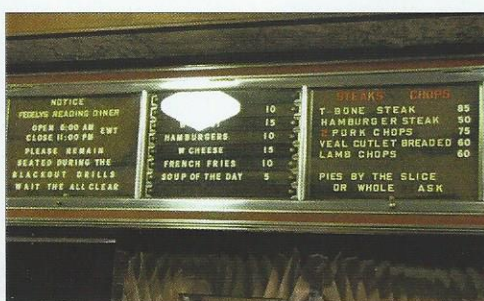 NOTICE
FEGELYS READING DINER
OPEN 6:00 AM
CLOSE 11:00 PM
EWT
PLEASE REMAIN
SEATED DURING THE
BLACKOUT DRILLS
WAIT THE ALL CLEAR
10
15
HAMBURGERS 10
W CHEESE 15
FRENCH FRIES 10
SOUP OF THE DAY 5
STEAKS CHOPS
T-BONE STEAK 85
HAMBURGER STEAK 50
2 PORK CHOPS 75
VEAL CUTLET BREADED 60
LAMB CHOPS 60
PIES BY THE SLICE
OR WHOLE ASK